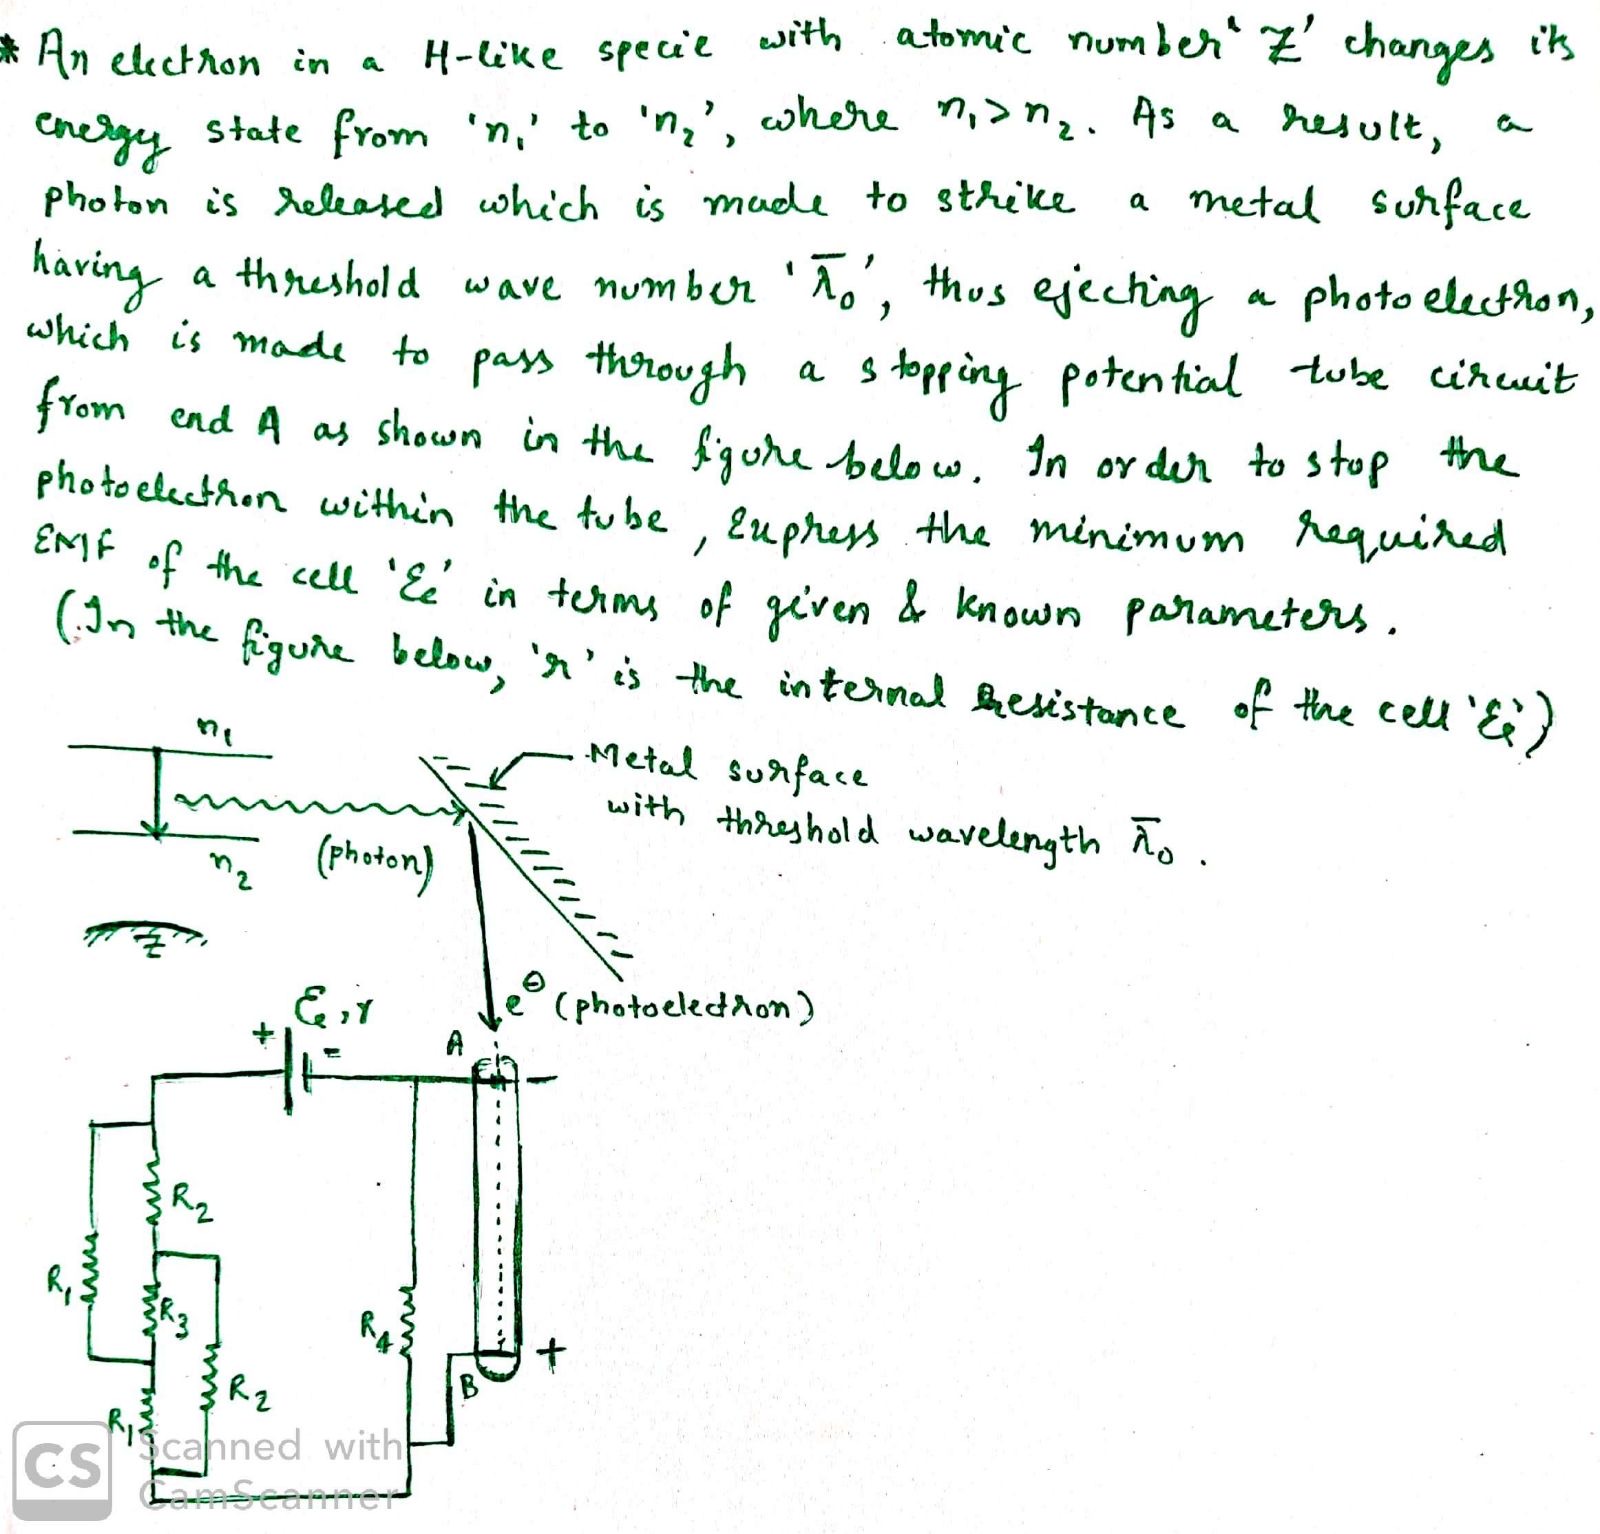 * An electron in a H-like specie with atomic number 'Z' changes its
energy state from 'n₁' to 'n₂', where n₁>n₂. As a result, a
photon is released which is made to strike a metal surface
having a threshold wave number 'λ̅₀', thus ejecting a photoelectron,
which is made to pass through a stopping potential tube circuit
from end A as shown in the figure below. In order to stop the
photoelectron within the tube, Express the minimum required
EMF of the cell 'Ee' in terms of given & known parameters.
(In the figure below, 'r' is the internal Resistance of the cell 'Ee')
n₁
Metal surface
with threshold wavelength λ̅₀.
n₂
(photon)
Z
e⊖ (photoelectron)
Ee, r
+
-
A
-
R₂
R₁
R₃
R₄
+
B
R₂
R₁
CS
Scanned with
CamScanner